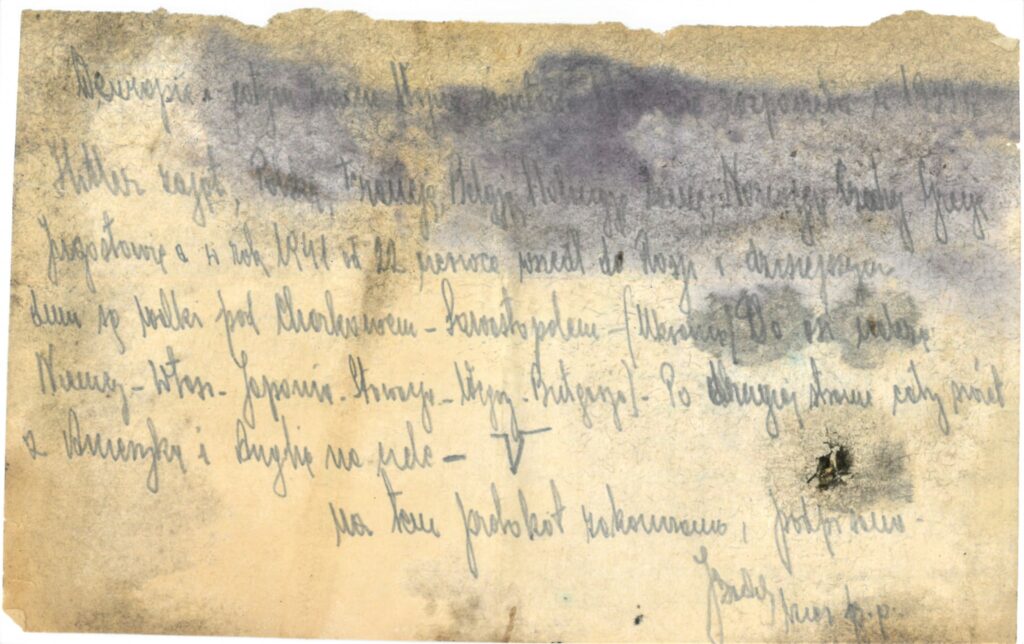 W Europie i całym świecie Wojna światowa rozpoczęta w 1939 r.
Hitler zajął Polskę, Francję, Belgję, Holandję, Danię, Norwegję, Czechy, Grecję
Jugosławię a w rok 1941 od 22 czerwca poszedł do Rosji i dzisiejszym
dniu są walki pod Charkowem – Sewastopolem – (Ukraina) Do osi należą
Niemcy – Włosi – Japonia – Słowacy – Węgrzy – Bułgarzy) – Po drugiej stronie cały świat
z Ameryką i Anglią na czele – V
na tem protokół zakończono i podpisano.